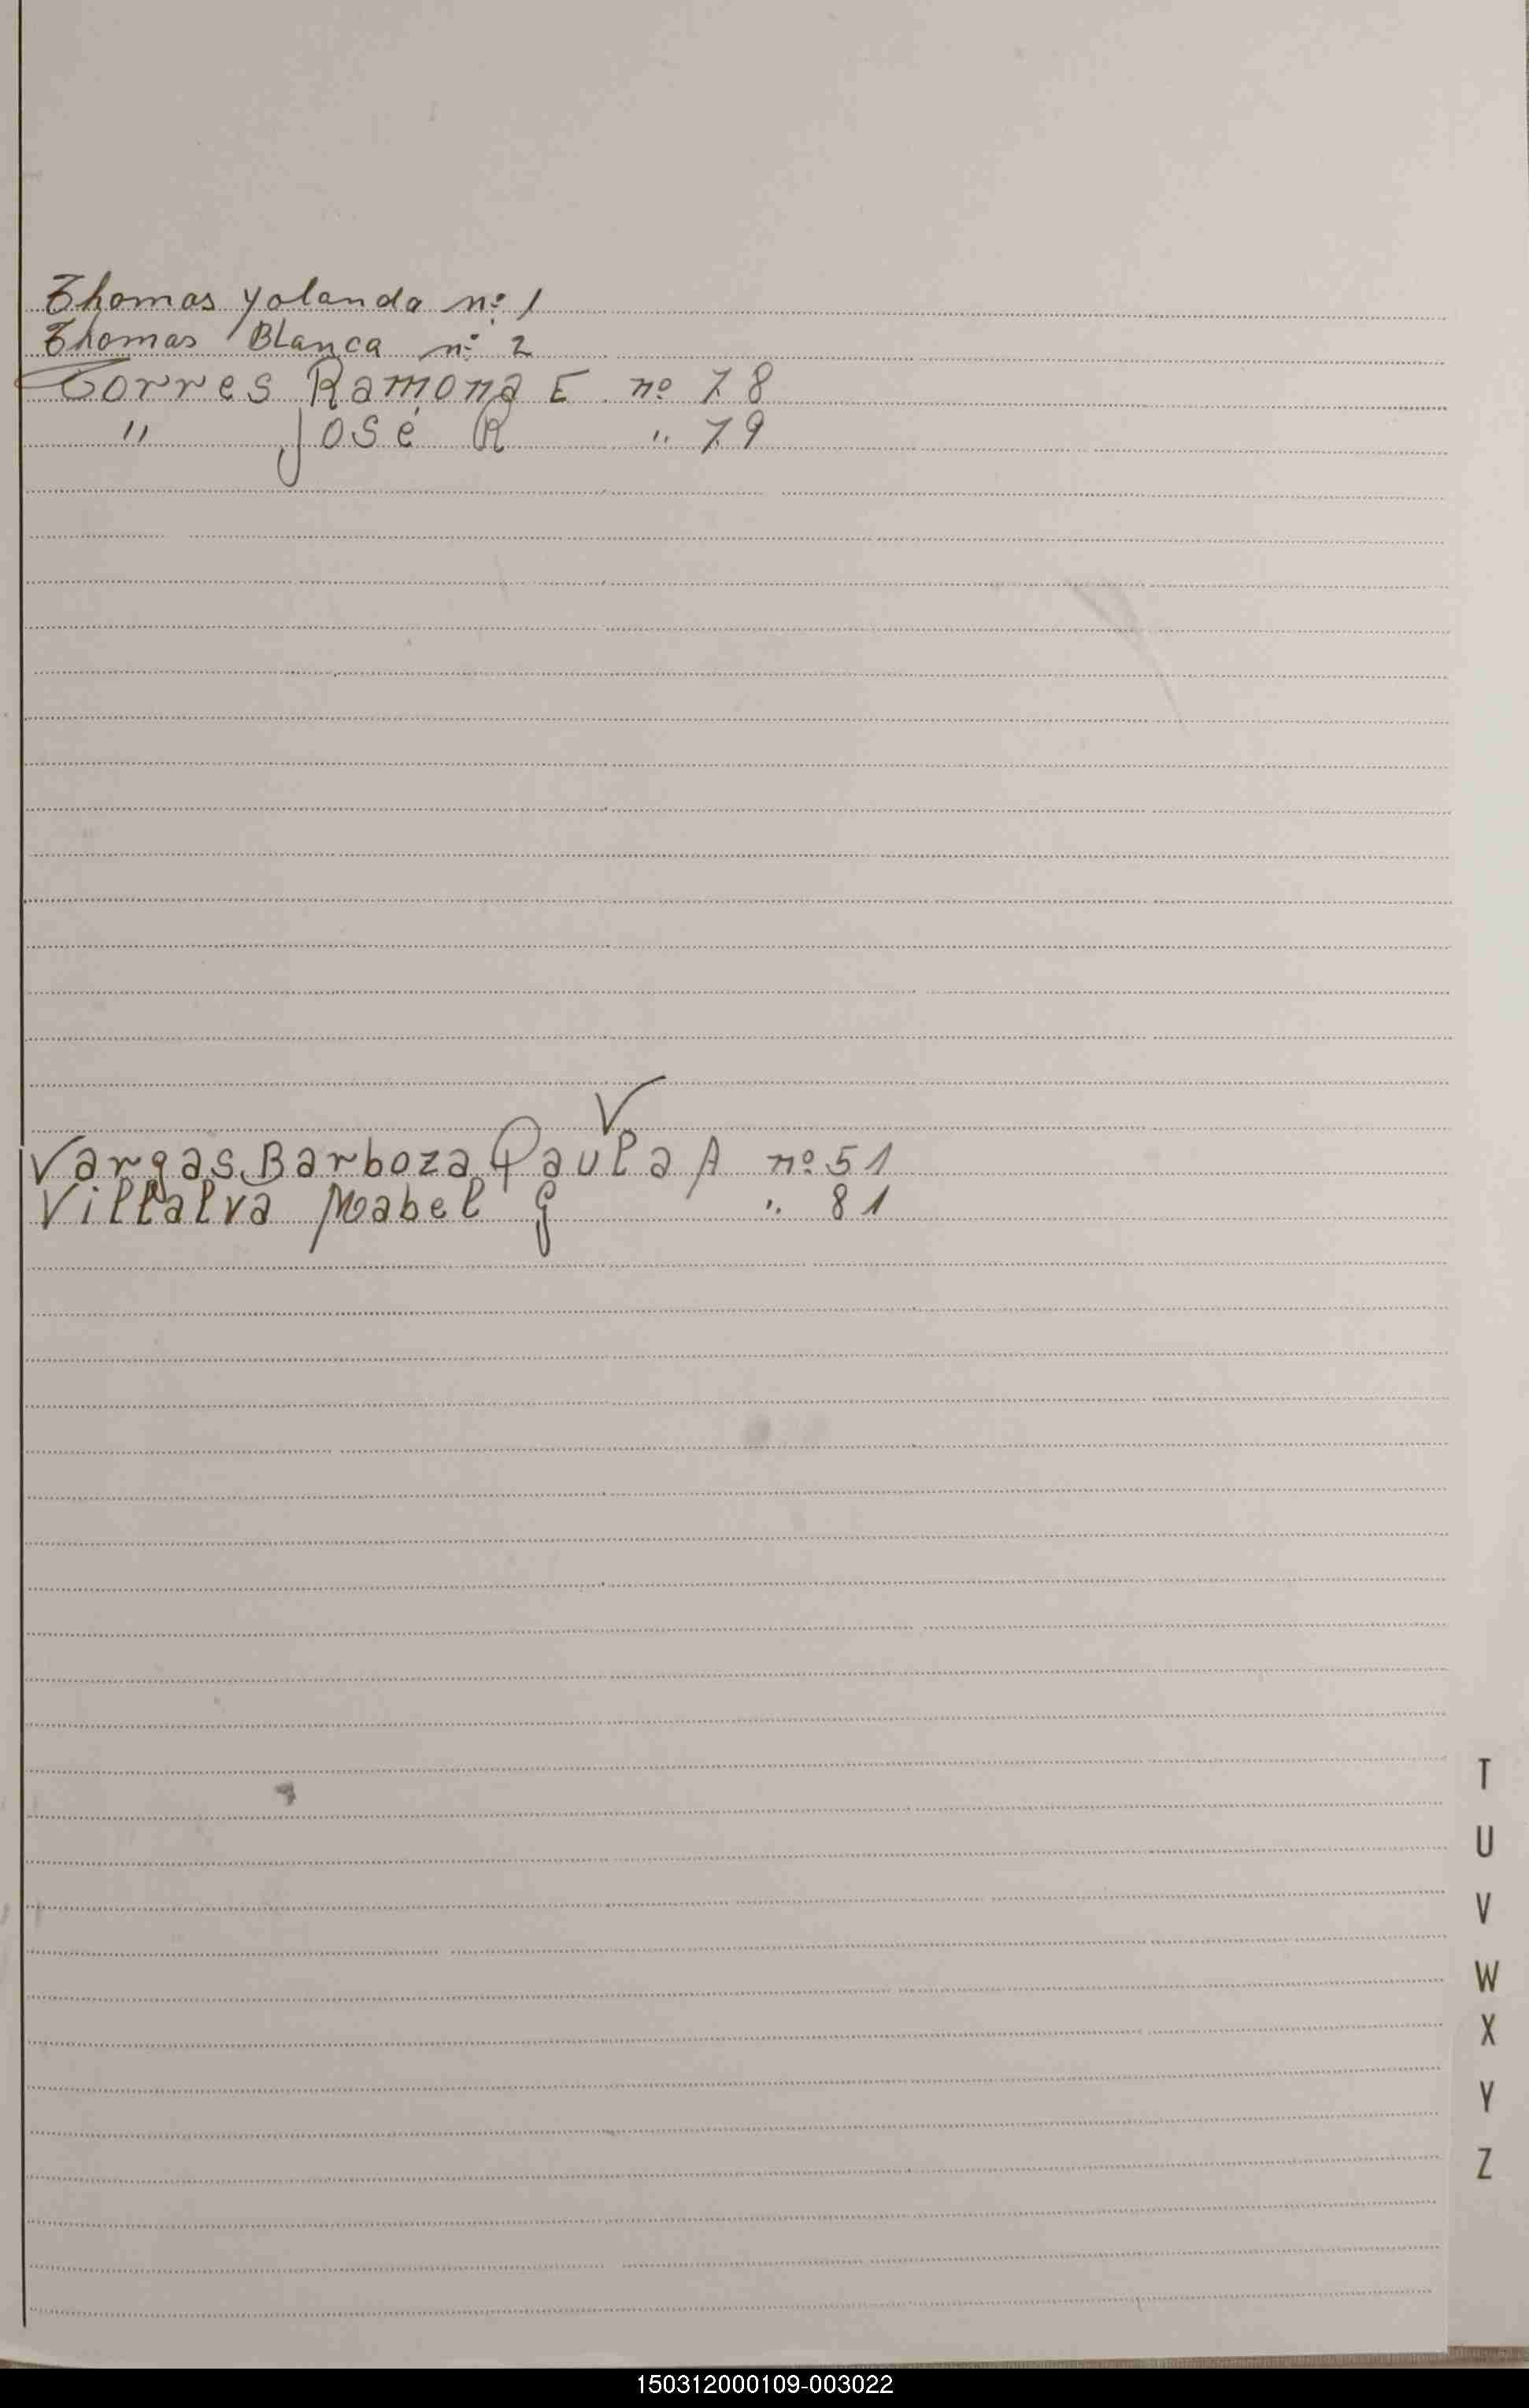 Thomas Yolanda nº 1
Thomas Blanca nº 2
Torres Ramona E nº 78
" José R " 79
V
Vargas Barboza Paula A nº 51
Villalva Mabel G " 81
T
U
V
W
X
Y
Z
150312000109-003022